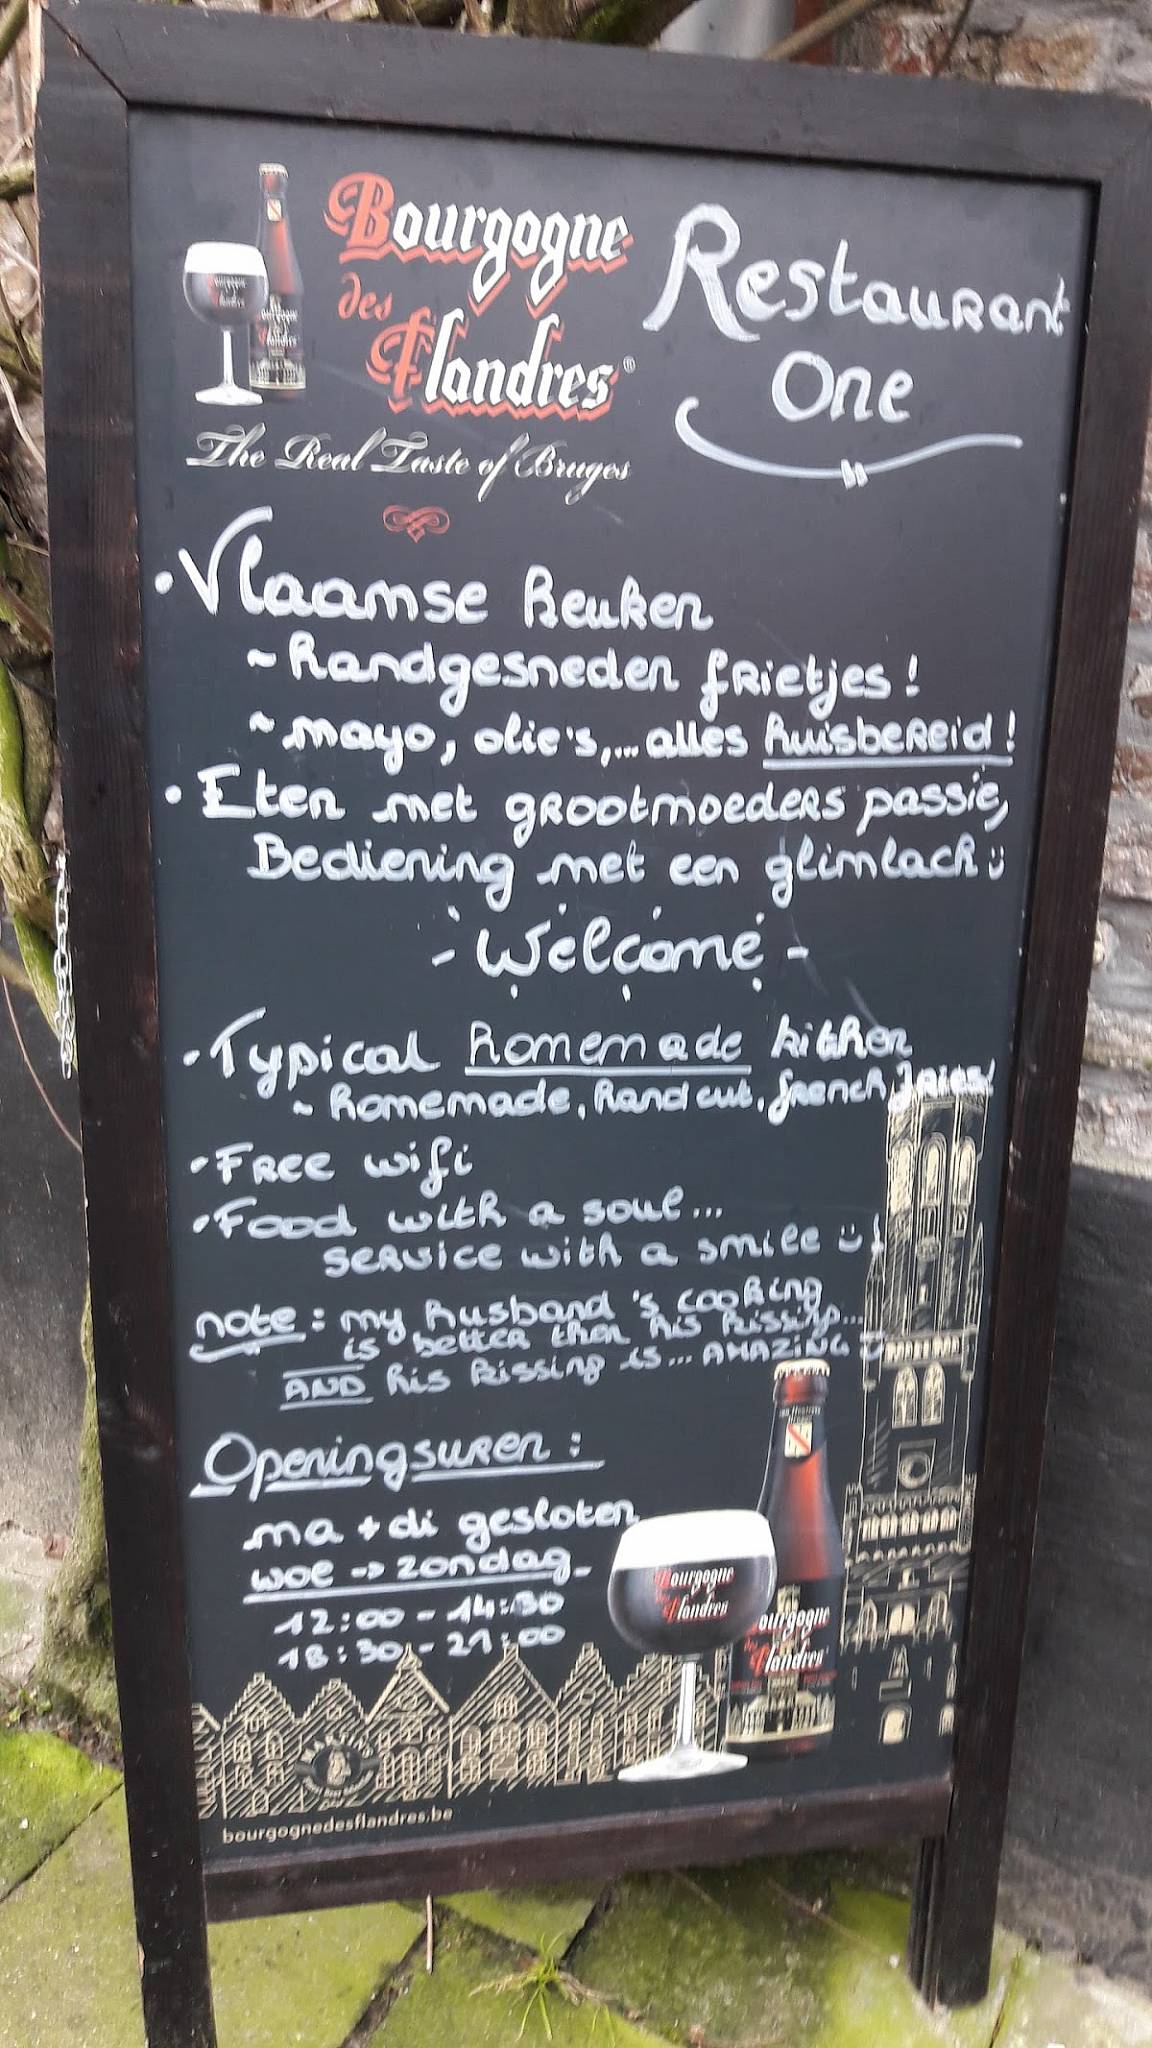 Bourgogne
des
Flandres®
The Real Taste of Bruges
Restaurant
One
• Vlaamse keuken
~ handgesneden frietjes!
~ mayo, olie's,... alles huisbereid!
• Eten met grootmoeders passie,
Bediening met een glimlach :)
- Welcome -
• Typical homemade kitchen
~ homemade, hand cut, french fries!
• Free wifi
• Food with a soul...
service with a smile :)!
note: my husband's cooking
is better then his kissing...
AND his kissing is... AMAZING :)
Openingsuren:
ma + di gesloten
woe -> zondag
12:00 - 14:30
18:30 - 21:00
Bourgogne
des
Flandres
Bourgogne
des
Flandres
MARTIN'S
bourgognedesflandres.be